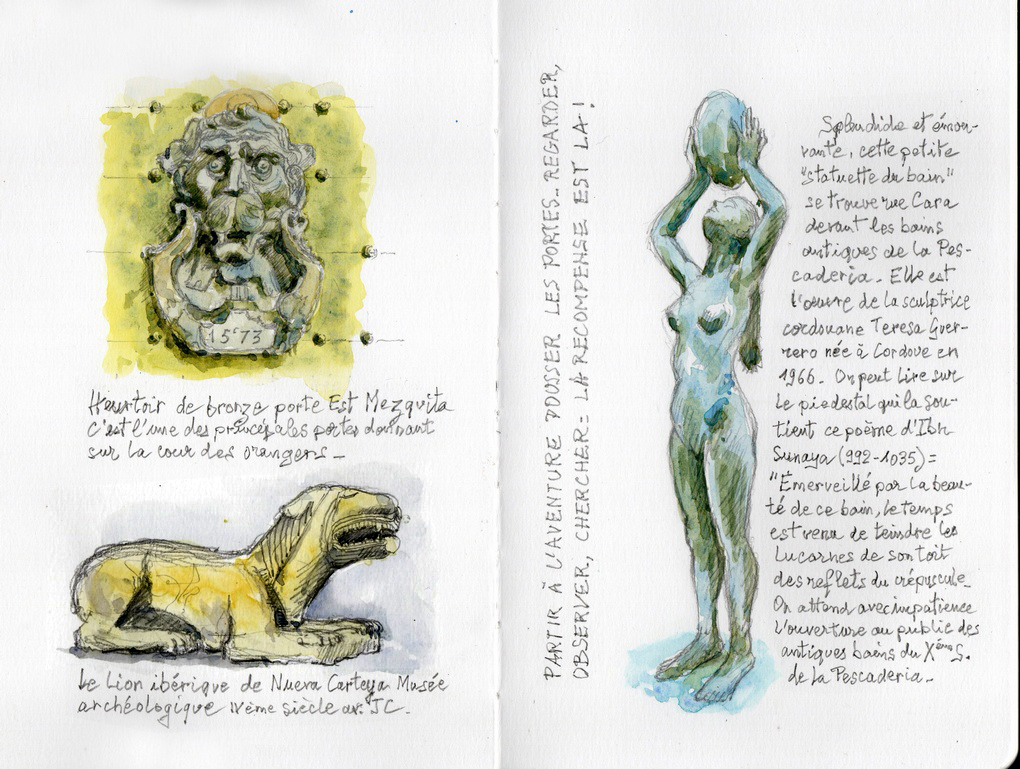 1573
Heurtoir de bronze porte Est Mezquita
C'est l'une des principales portes donnant
sur la cour des orangers_
Le Lion ibérique de Nueva Carteya Musée
archéologique IVème siècle av. JC.
PARTIR À L'AVENTURE POUSSER LES PORTES. REGARDER,
OBSERVER, CHERCHER = LA RECOMPENSE EST LA !
Splendide et émou-
vante, cette petite
"statuette du bain"
se trouve rue Cara
devant les bains
antiques de la Pes-
caderia. Elle est
l'œuvre de la sculptrice
cordouane Teresa Guer-
rero née à Cordove en
1966. On peut lire sur
le piedestal qui la sou-
tient ce poème d'Ibn
Sunaya (992-1035) =
"Émerveillé par la beau-
té de ce bain, le temps
est venu de teindre les
lucarnes de son toit
des reflets du crépuscule_
On attend avec impatience
l'ouverture au public des
antiques bains du Xème S.
de la Pescaderia_